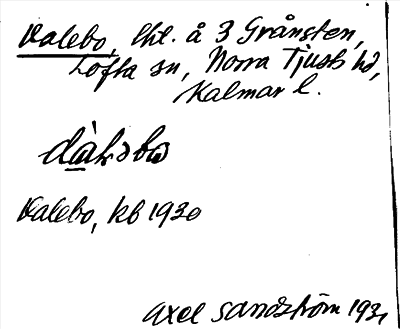 Dalebo, lht. å 3 Grånsten,
Lofta sn, Norra Tjusts hd,
Kalmar l.
dàləbω
Dalebo, kb 1930
Axel Sandström 1931